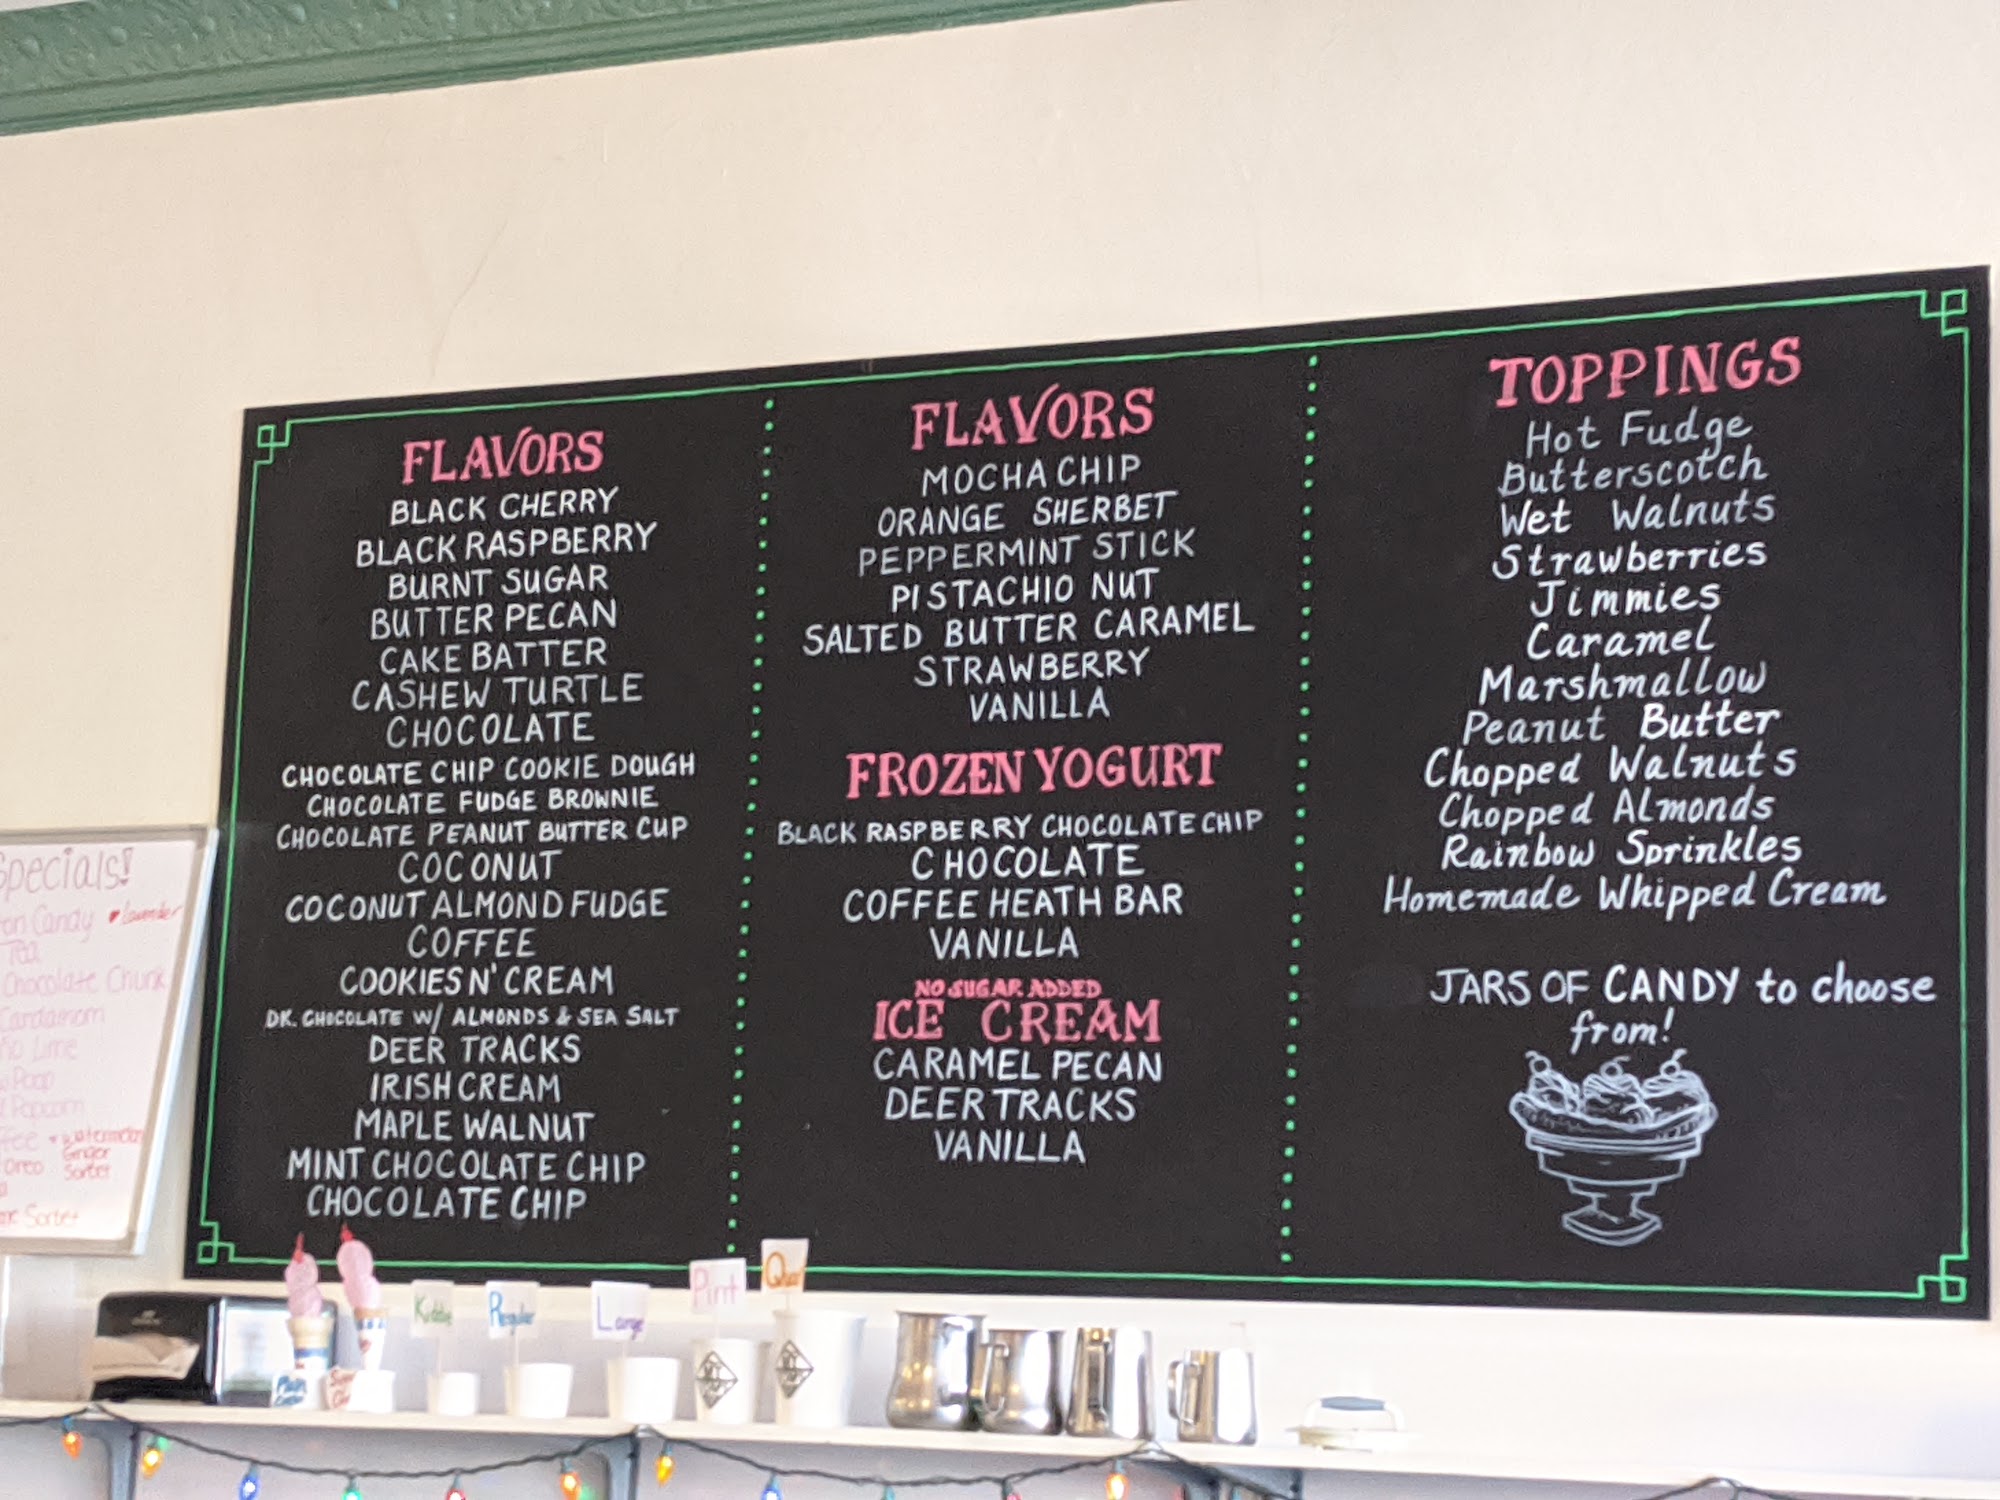 FLAVORS
BLACK CHERRY
BLACK RASPBERRY
BURNT SUGAR
BUTTER PECAN
CAKE BATTER
CASHEW TURTLE
CHOCOLATE
CHOCOLATE CHIP COOKIE DOUGH
CHOCOLATE FUDGE BROWNIE
CHOCOLATE PEANUT BUTTER CUP
COCONUT
COCONUT ALMOND FUDGE
COFFEE
COOKIES N' CREAM
DK. CHOCOLATE W/ ALMONDS & SEA SALT
DEER TRACKS
IRISH CREAM
MAPLE WALNUT
MINT CHOCOLATE CHIP
CHOCOLATE CHIP
FLAVORS
MOCHA CHIP
ORANGE SHERBET
PEPPERMINT STICK
PISTACHIO NUT
SALTED BUTTER CARAMEL
STRAWBERRY
VANILLA
FROZEN YOGURT
BLACK RASPBERRY CHOCOLATE CHIP
CHOCOLATE
COFFEE HEATH BAR
VANILLA
NO SUGAR ADDED
ICE CREAM
CARAMEL PECAN
DEER TRACKS
VANILLA
TOPPINGS
Hot Fudge
Butterscotch
Wet Walnuts
Strawberries
Jimmies
Caramel
Marshmallow
Peanut Butter
Chopped Walnuts
Chopped Almonds
Rainbow Sprinkles
Homemade Whipped Cream
JARS OF CANDY to choose
from!
Specials!
Candy
Lavender
Tea
Chocolate Chunk
Cardamom
Lime
Poop
Popcorn
Ginger
Oreo Sorbet
Sorbet
Kiddie
Regular
Large
Pint